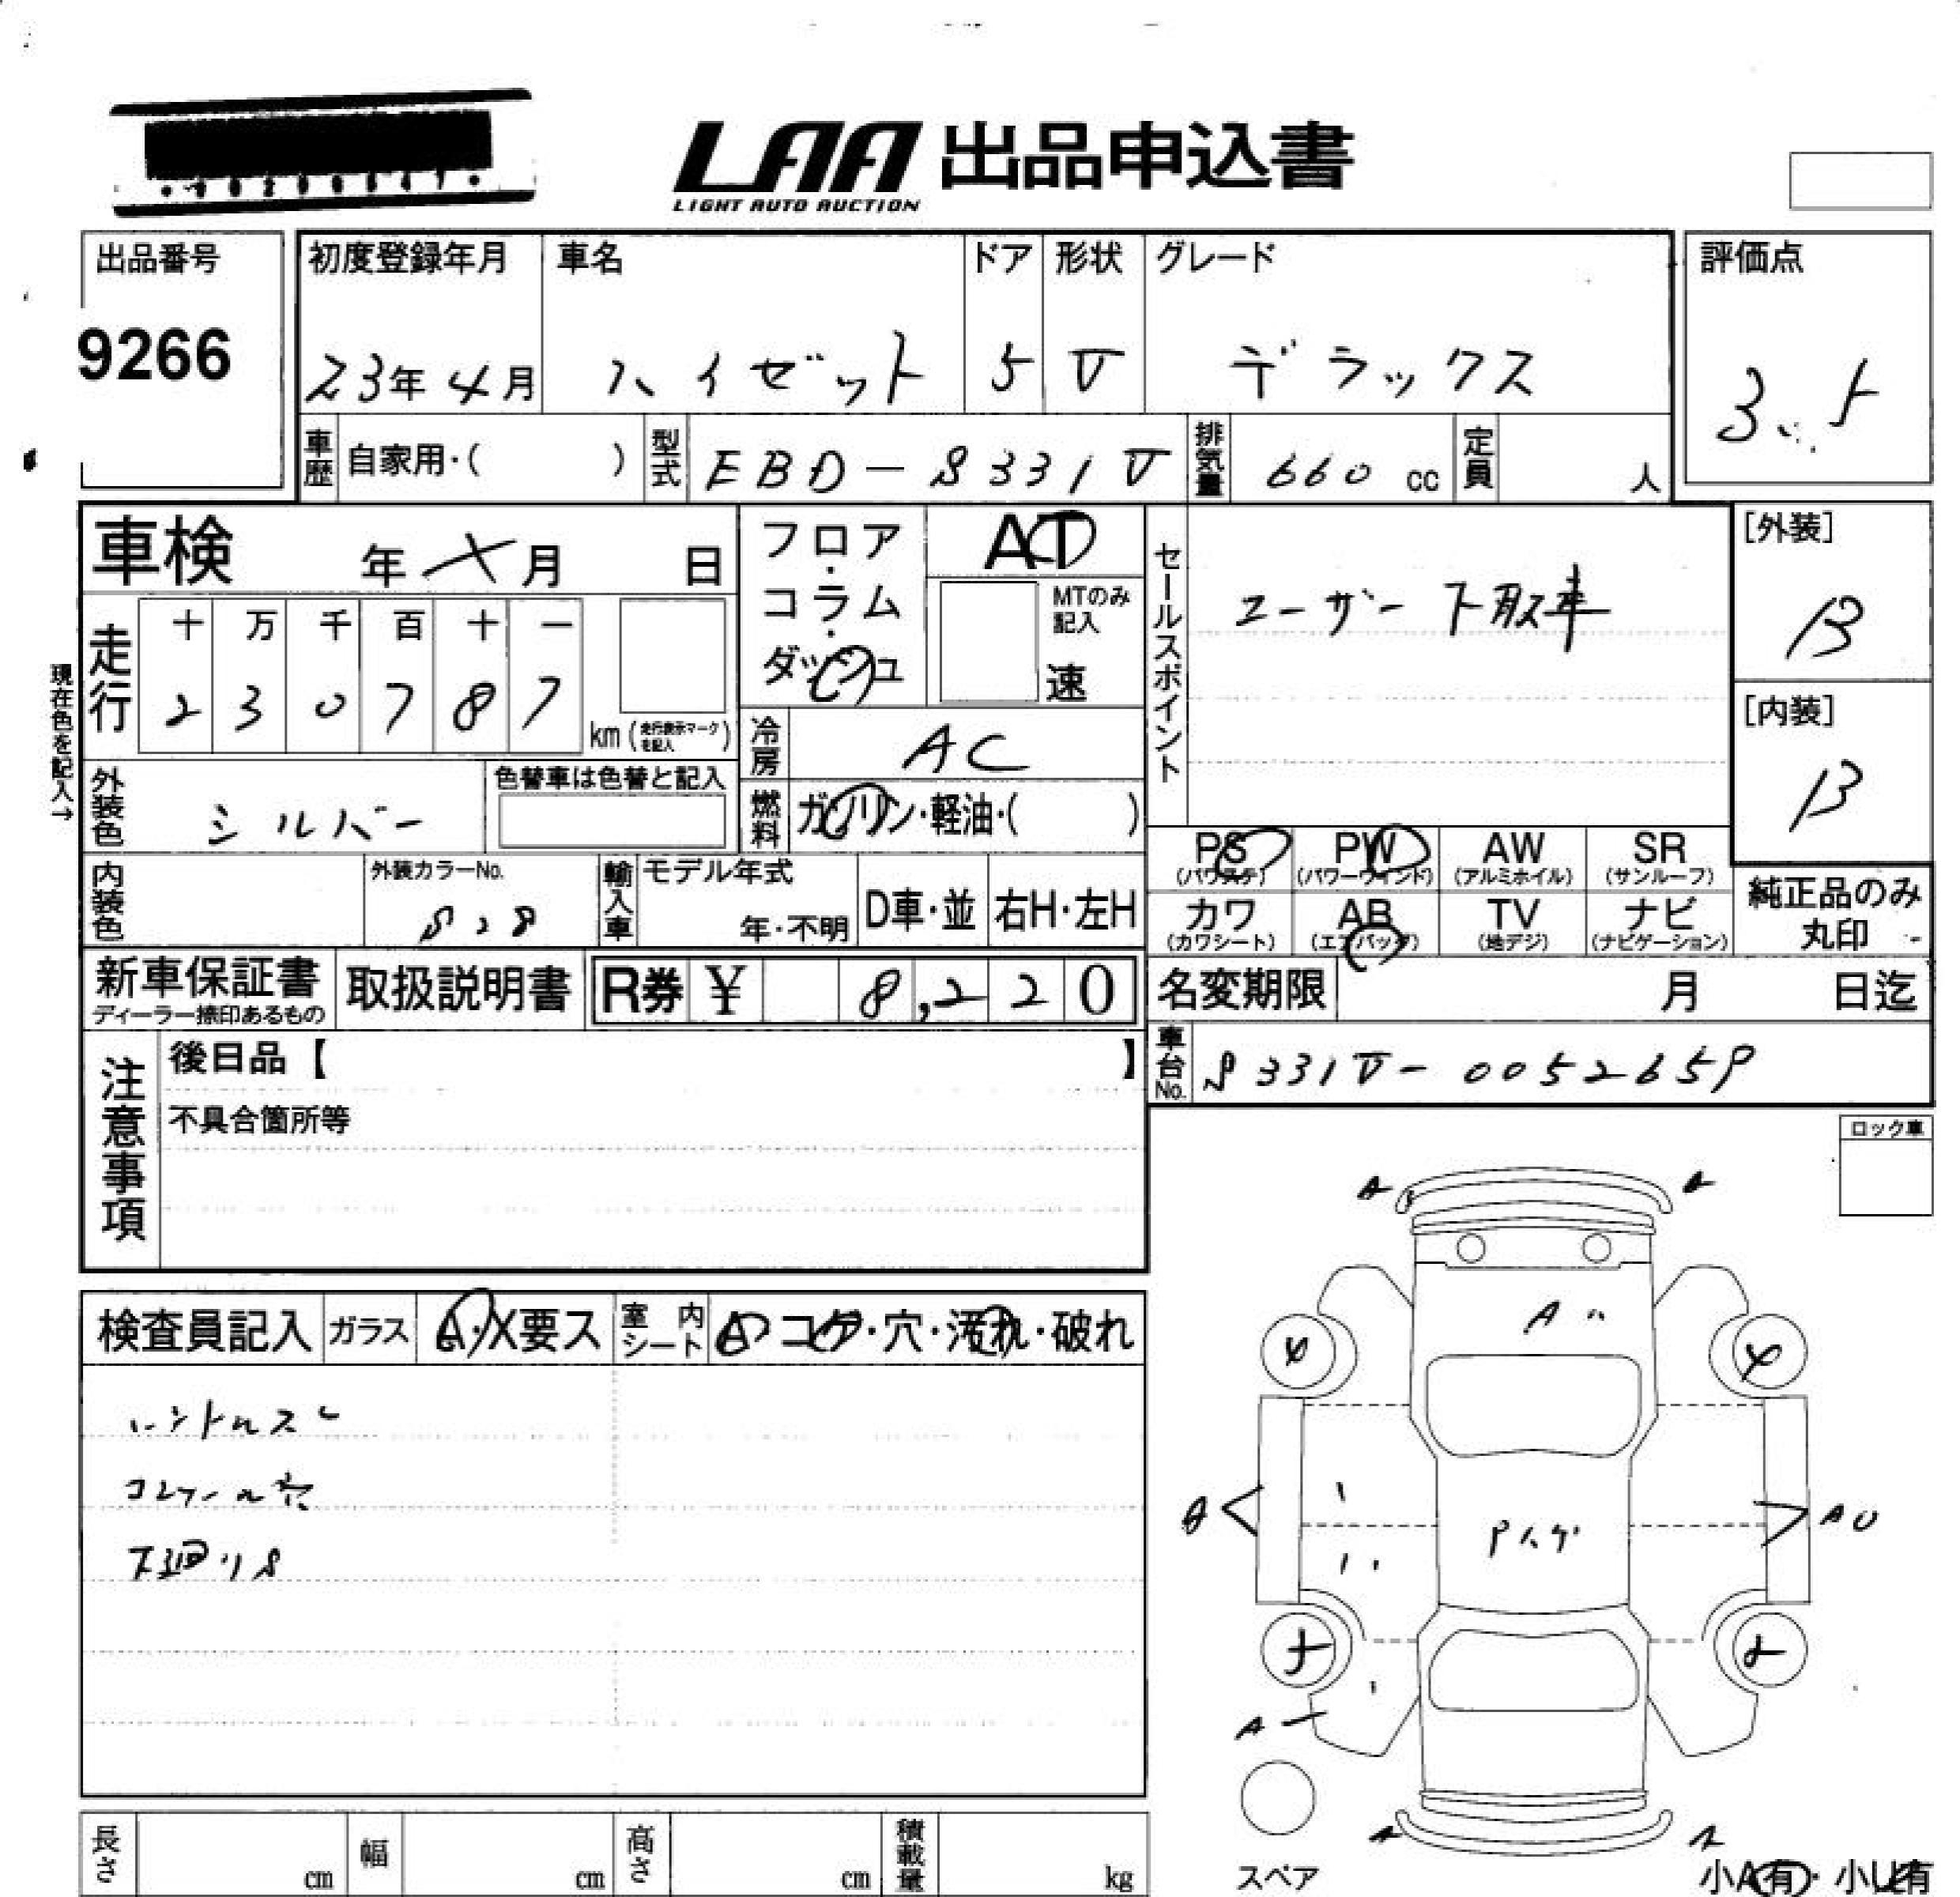 LAA 出品申込書
LIGHT AUTO AUCTION
出品番号
9266
初度登録年月
23年4月
車名
ハイゼット
ドア
5
形状
V
グレード
デラックス
評価点
3.5
車歴
自家用・( )
型式
EBD-S331V
排気量
660 cc
定員
人
車検 年 月 日
フロア・コラム・ダッシュ
AT
MTのみ記入
速
セールスポイント
ユーザー下取車
[外装]
B
[内装]
B
現在色を記入→
走行
十 万 千 百 十 一
2 3 0 7 8 7
km (走行表示マークを記入)
冷房
AC
外装色
シルバー
色替車は色替と記入
燃料
ガソリン・軽油・( )
PS (パワステ)
PW (パワーウインド)
AW (アルミホイル)
SR (サンルーフ)
内装色
外装カラーNo.
S28
輸入車
モデル年式
年・不明
D車・並
右H・左H
カワ (カワシート)
AB (エアバッグ)
TV (地デジ)
ナビ (ナビゲーション)
純正品のみ
丸印
新車保証書
ディーラー捺印あるもの
取扱説明書
R券 ¥ 8,220
名変期限 月 日迄
注意事項
後日品【 】
不具合箇所等
車台No.
S331V-0052659
ロック車
検査員記入
ガラス
A・X要ス
室内シート
A コゲ・穴・汚れ・破れ
ハンドルスレ
コンソール穴
下廻りS
A
A
A
4
4
A
AU
A
A
スペア
小A有・小U有
長さ cm
幅 cm
高さ cm
積載量 kg